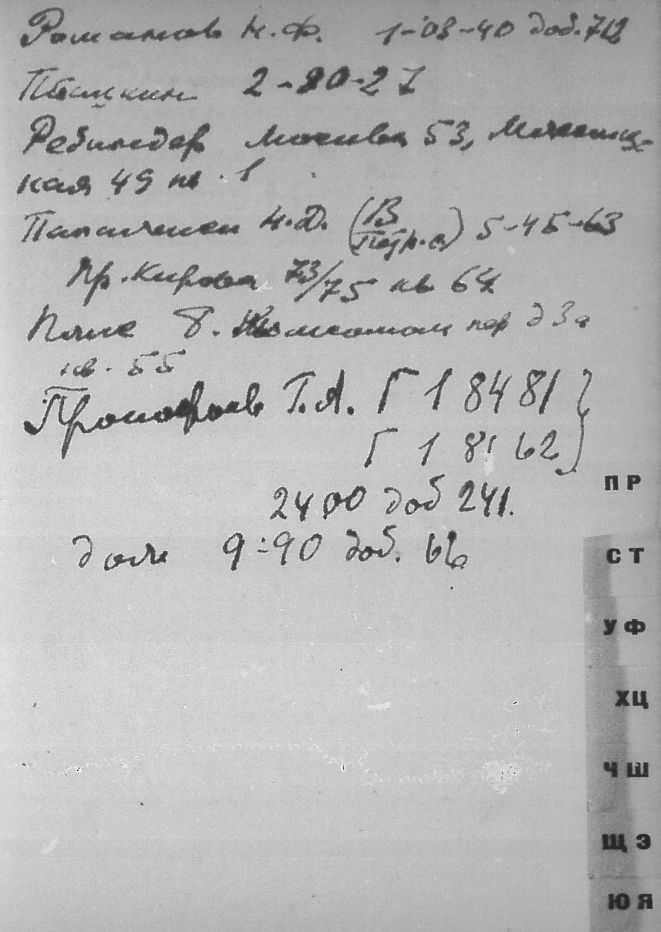 Романов Н.Ф. 1-03-40 доб. 712
2-80-27
Ребиндер Москва 53,
кая 49 кв. 1
Н.Д. (В 5-45-63
Пр. Кирова 73/75 кв 64
пер д 3а
кв. 55
Прокофьев Г.А. Г 1 84 81
Г 1 81 62
2400 доб 241.
9-90 доб. 66
ПР
СТ
УФ
ХЦ
ЧШ
ЩЭ
ЮЯ